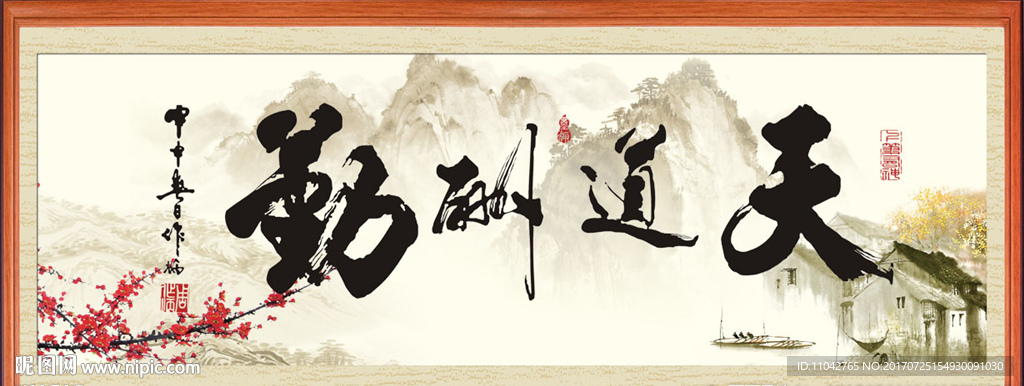 天道酬勤
甲申春日作
昵图网 www.nipic.com
ID:11042765 NO:20170725154930091030